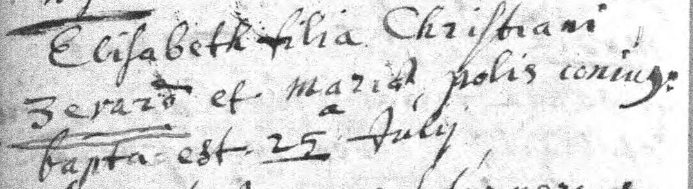 Elisabeth filia Christiani
et Maria polis coniug:
bapta est 25 a July